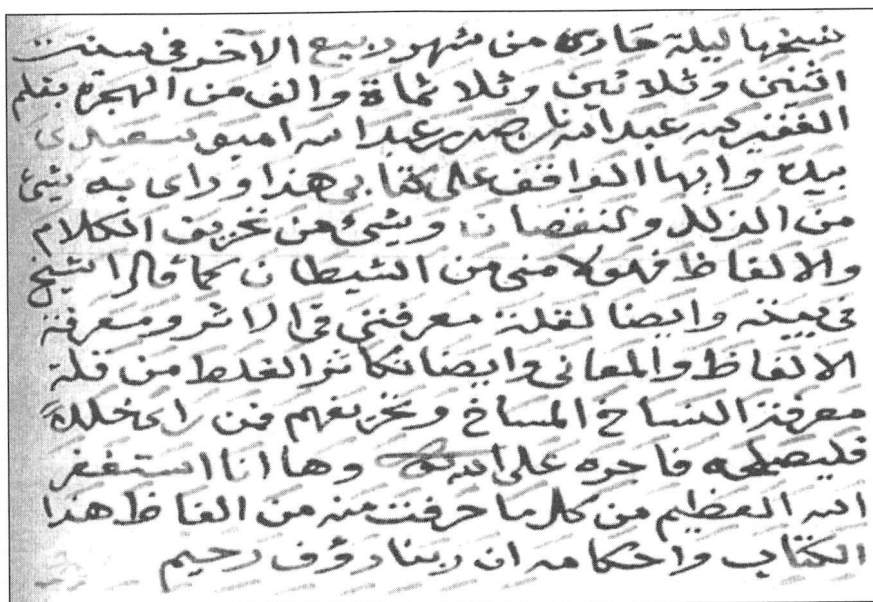 نسخها ليلة حادى من شهر ربيع الآخر فى سنت
اثنين وثلاثين وثلاثماة والف من الهجرة بقلم
الفقير لله عبدالله بن عبدالله امبو سعيدى
بيده وايها الواقف على كتابى هذا وراى به شئ
من الزلل والنقصان وشئ من تحريف الكلام
والالفاظ فهو لا منى من الشيطان كما قال الشيخ
فى بيته وايضا لقلة معرفتى فى الاثر ومعرفة
الالفاظ والمعانى وايضا تكاثر الغلط من قلة
معرفة النساخ المساخ وتحريفهم فمن راى خللاً
فليصلحه فاجره على الله وها انا استغفر
الله العظيم من كل ما حرفت منه من الفاظ هذا
الكتاب واحكامه ان ربنا رؤف رحيم